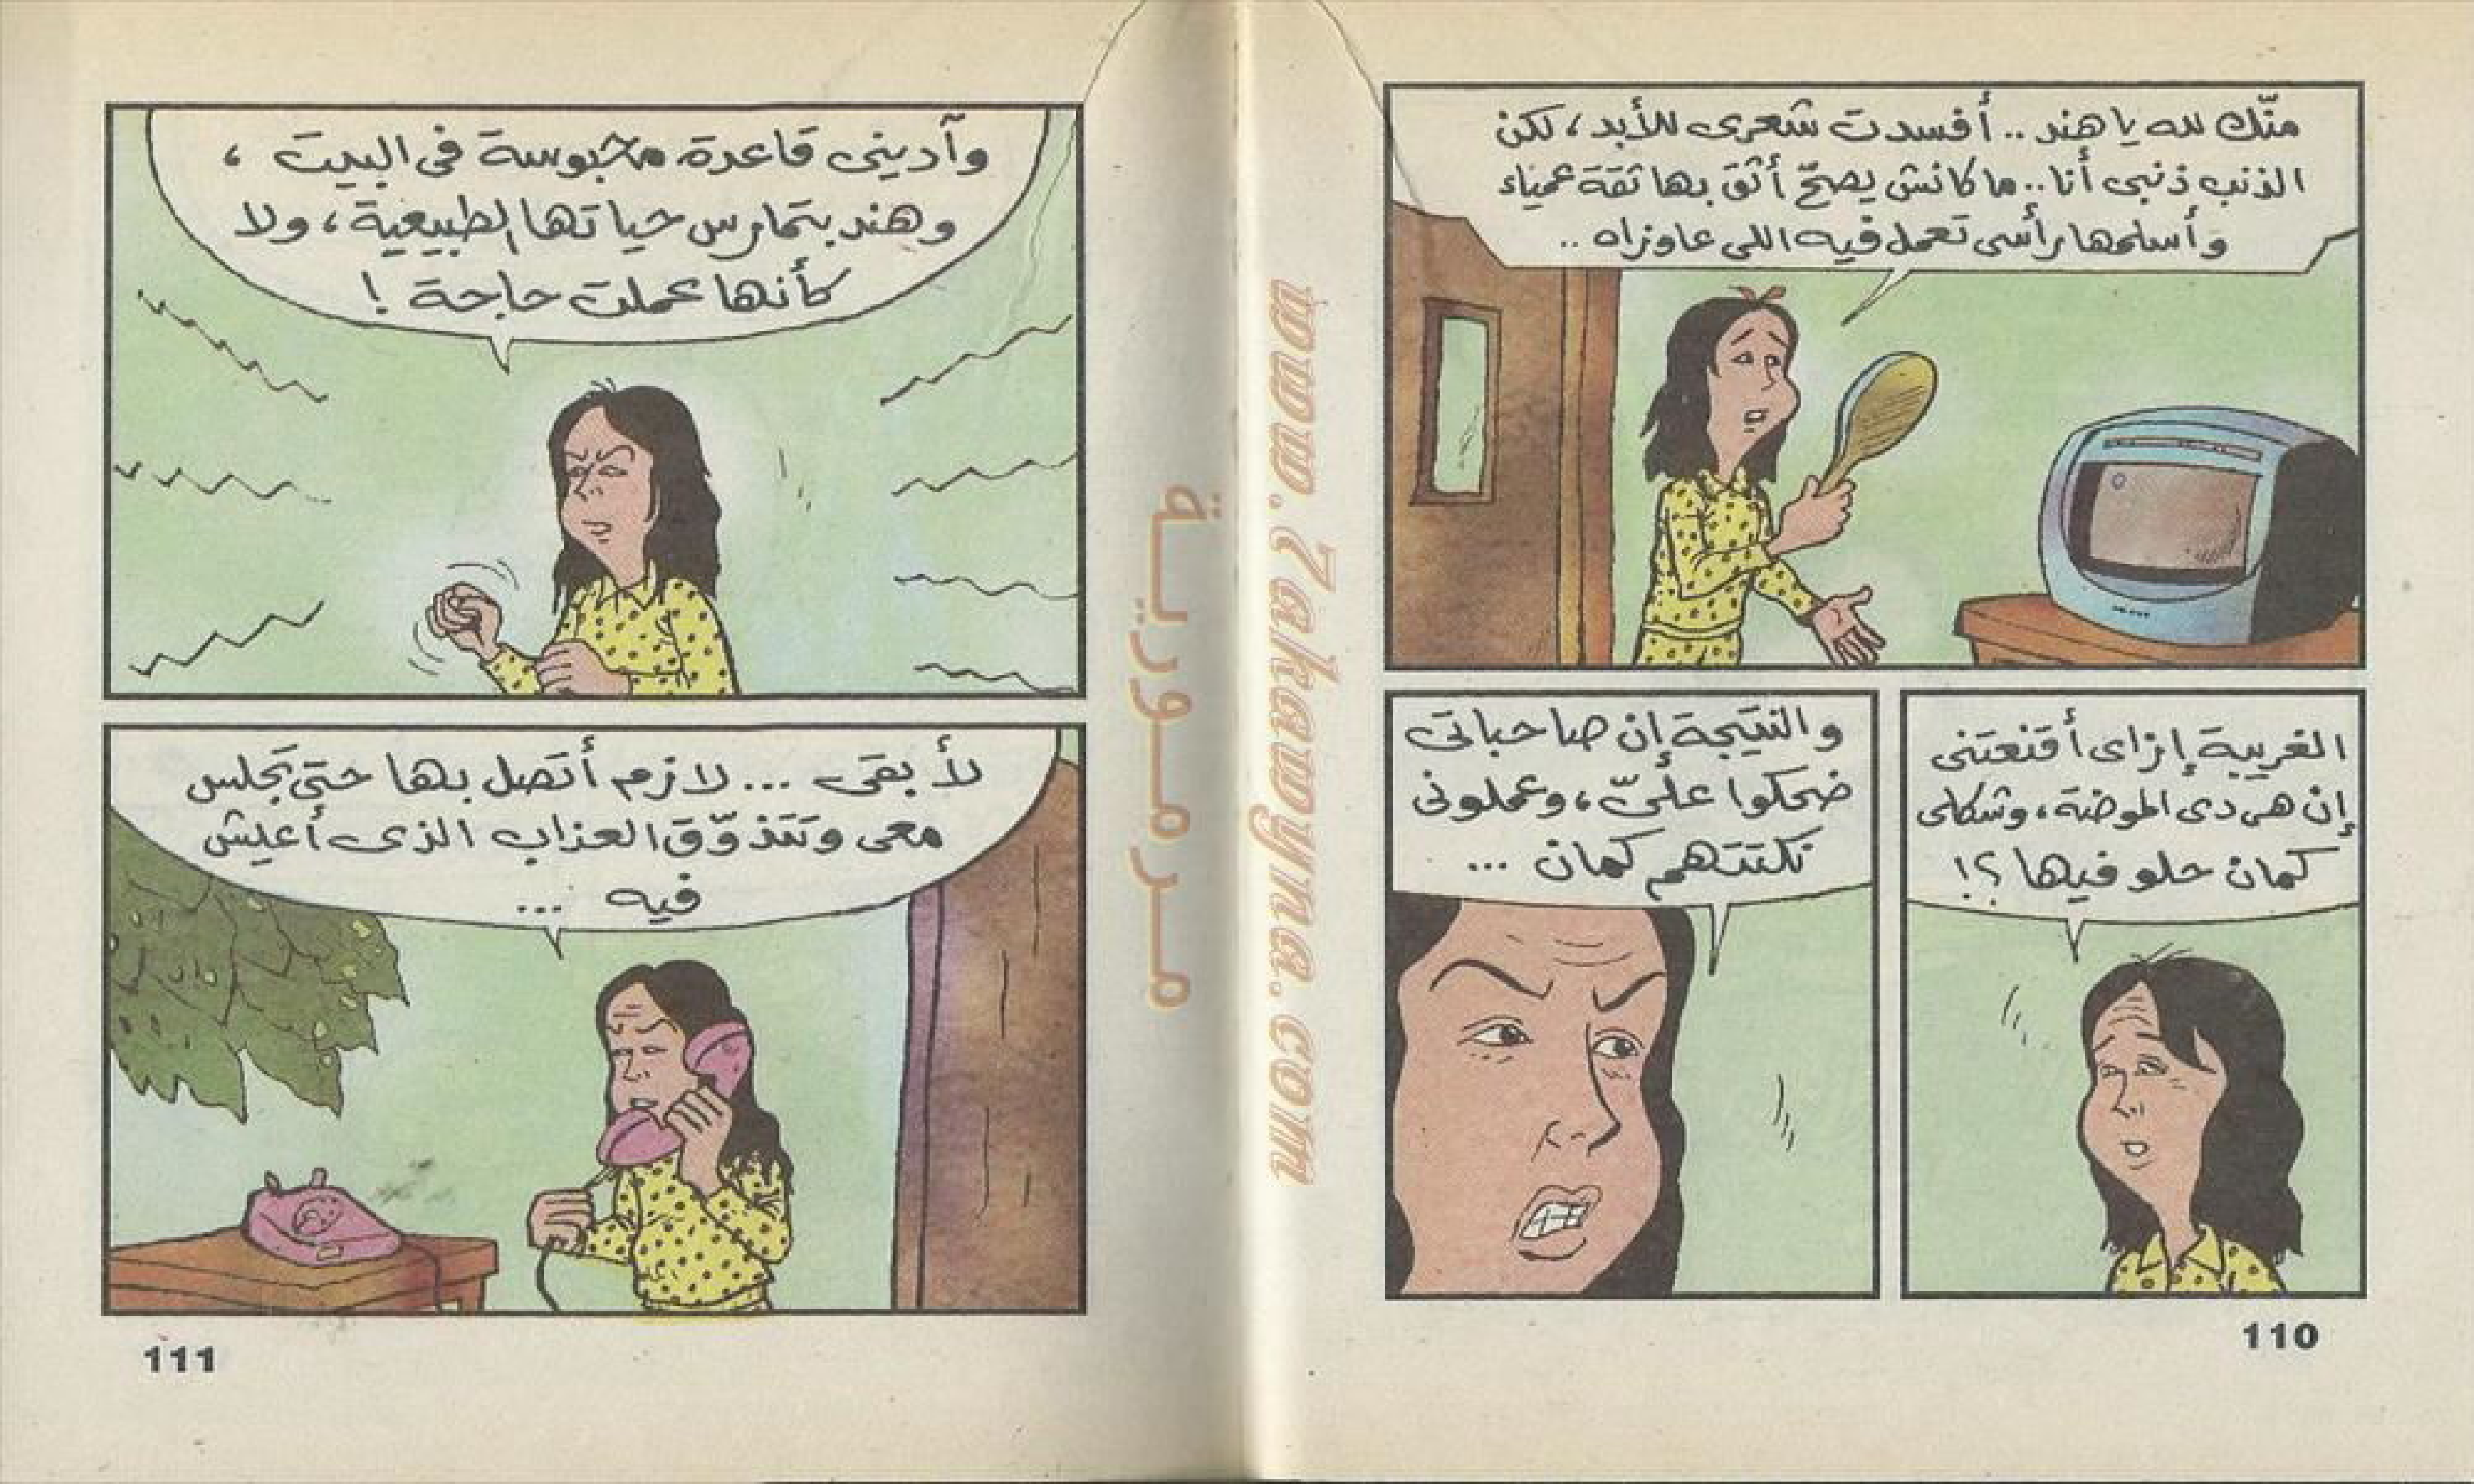 منّك لله يا هند .. أفسدت شعرى للأبد ، لكن
الذنب ذنبى أنا .. ما كانش يصحّ أثق بها ثقة عمياء
وأسلمها رأسى تعمل فيه اللى عاوزاه ..
الغريبة إزاى أقنعتنى
إن هى دى الموضة ، وشكلى
كمان حلو فيها ؟!
والنتيجة إن صاحباتى
ضحكوا علىّ ، وعملونى
نكتتهم كمان ...
110
وآدينى قاعدة محبوسة فى البيت ،
وهند بتمارس حياتها الطبيعية ، ولا
كأنها عملت حاجة !
لأ بقى ... لازم أتصل بها حتى تجلس
معى وتتذوّق العذاب الذى أعيش
فيه ...
111
www.7akawyna.com
مرمورية